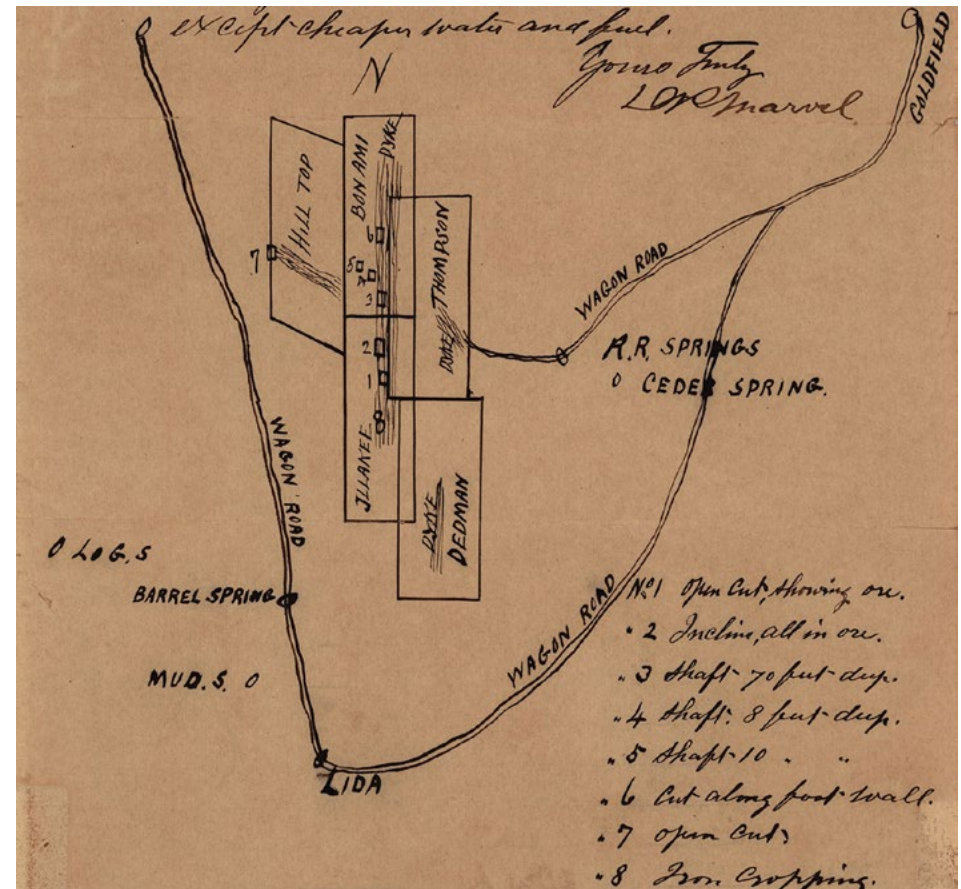 except cheaper water and fuel.
Yours Truly
L W Marvel
N
GOLDFIELD
HILL TOP
BON AMI
DYKE
THOMPSON
DYKE
6
7
5
4
3
2
1
8
WAGON ROAD
R.R. SPRINGS
O CEDER SPRING.
WAGON ROAD
DYKE
DEDMAN
O LOG.S
BARREL SPRING
MUD.S. O
WAGON ROAD
LIDA
No1 Open Cut, showing ore.
" 2 Incline, all in ore.
" 3 Shaft 70 feet deep.
" 4 Shaft. 8 feet deep.
" 5 Shaft 10 " "
" 6 Cut along foot wall.
" 7 open Cut.
" 8 Iron Cropping.